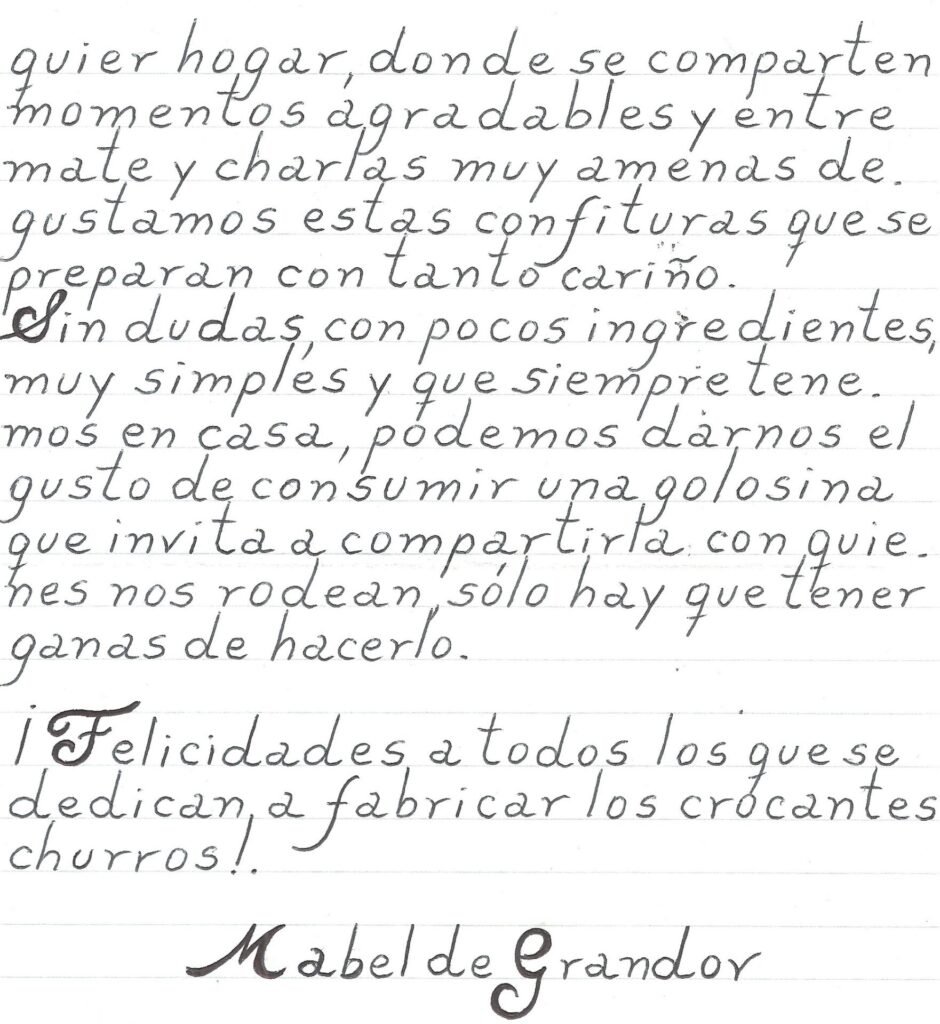 quier hogar, donde se comparten
momentos agradables y entre
mate y charlas muy amenas de.
gustamos estas confituras que se
preparan con tanto cariño.
Sin dudas, con pocos ingredientes,
muy simples y que siempre tene.
mos en casa, podemos darnos el
gusto de consumir una golosina
que invita a compartirla con quie.
nes nos rodean, sólo hay que tener
ganas de hacerlo.
¡Felicidades a todos los que se
dedican a fabricar los crocantes
churros!.
Mabel de Grandor